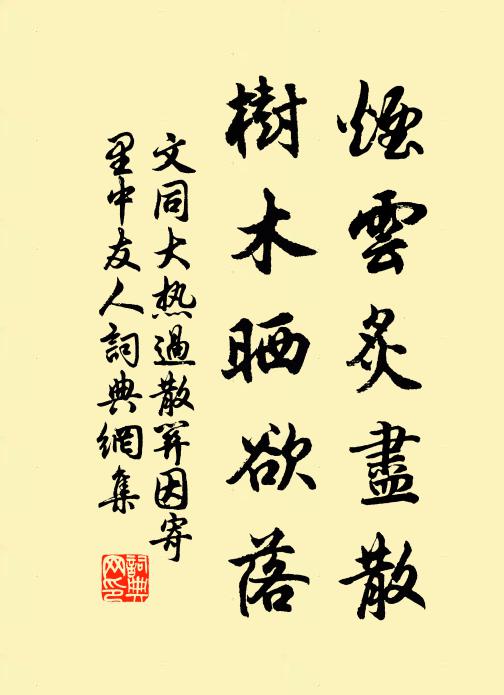 煙雲炙盡散
樹木晒欲落
文同大热過散關因寄
里中友人詞典網集
詞典
网